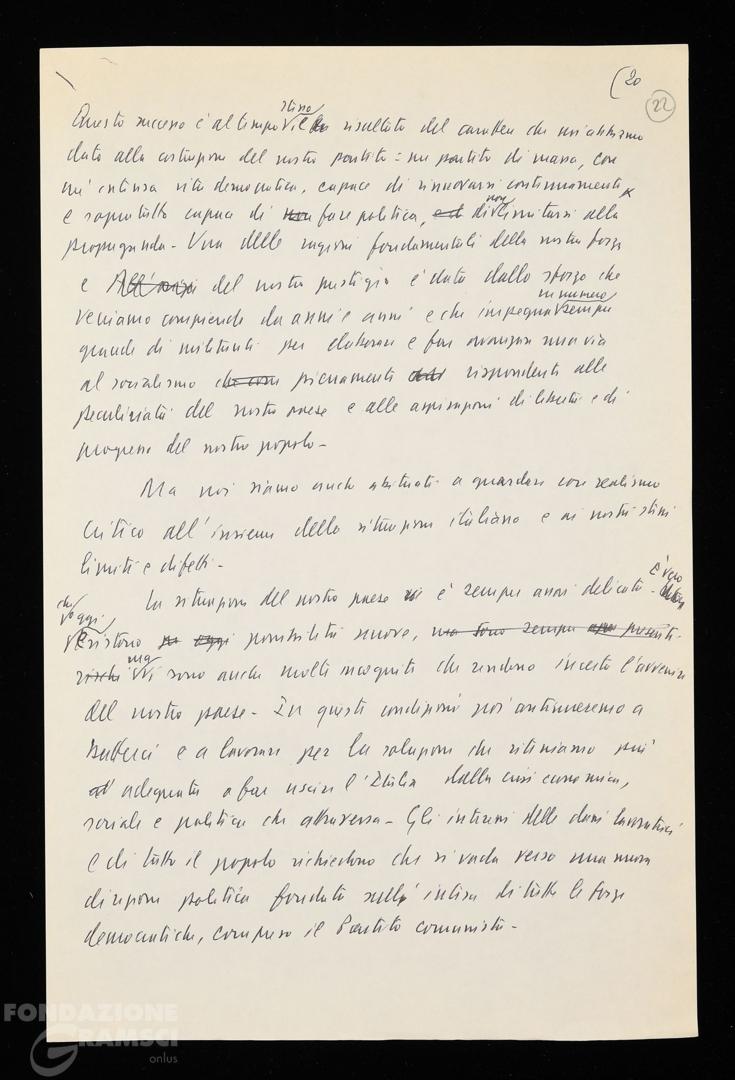 (20
22
Questo successo è al tempo stesso il risultato del carattere che noi abbiamo
dato alla costruzione del nostro partito: un partito di massa, con
un'intensa vita democratica, capace di rinnovarsi continuamente
e sopratutto capace di fare politica, di non limitarsi alla
propaganda - Una delle ragioni fondamentali della nostra forza
e del nostro prestigio è data dallo sforzo che
veniamo compiendo da anni e anni e che impegna un numero sempre
grande di militanti per elaborare e far avanzare una via
al socialismo pienamente rispondente alle
peculiarità del nostro paese e alle aspirazioni di libertà e di
progresso del nostro popolo -
Ma noi siamo anche abituati a guardare con realismo
critico all'insieme della situazione italiana e ai nostri stessi
limiti e difetti -
La situazione del nostro paese è sempre assai delicata - È vero
che oggi
esistono possibilità nuove, ma sono sempre presenti
rischi ma vi sono anche molte incognite che rendono incerto l'avvenire
del nostro paese - In queste condizioni noi continueremo a
batterci e a lavorare per la soluzione che riteniamo più
adeguata a far uscire l'Italia dalla crisi economica,
sociale e politica che attraversa - Gli interessi delle classi lavoratrici
e di tutto il popolo richiedono che si vada verso una nuova
direzione politica fondata sull'intesa di tutte le forze
democratiche, compreso il Partito comunista -
FONDAZIONE
GRAMSCI
onlus